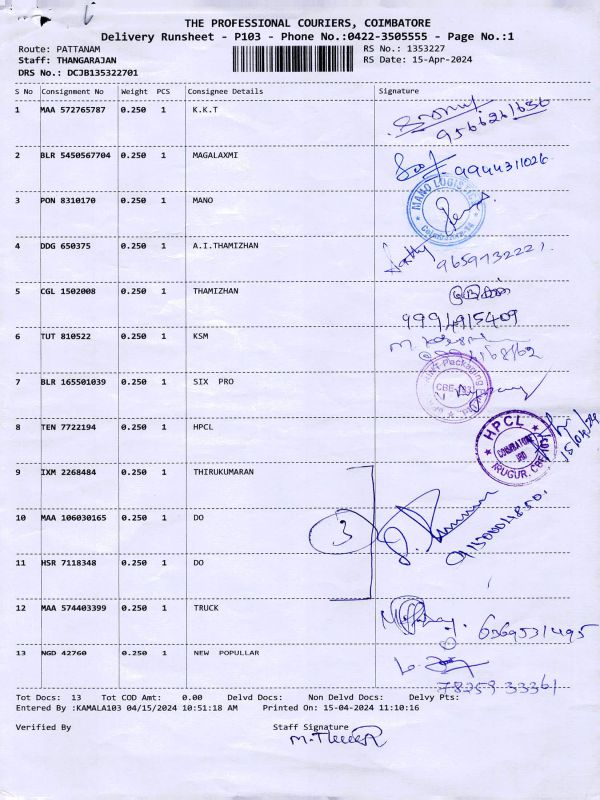 THE PROFESSIONAL COURIERS, COIMBATORE
Delivery Runsheet - P103 - Phone No.:0422-3505555 - Page No.:1
Route: PATTANAM RS No.: 1353227
Staff: THANGARAJAN RS Date: 15-Apr-2024
DRS No.: DCJB135322701
S No Consignment No Weight PCS Consignee Details Signature
1 MAA 572765787 0.250 1 K.K.T
2 BLR 5450567704 0.250 1 MAGALAXMI 9944311026
3 PON 8310170 0.250 1 MANO MANO LOGISTICS
4 DDG 650375 0.250 1 A.I.THAMIZHAN 9659732221
5 CGL 1502008 0.250 1 THAMIZHAN
9994915409
6 TUT 810522 0.250 1 KSM
7 BLR 165501039 0.250 1 SIX PRO
8 TEN 7722194 0.250 1 HPCL HPCL IRUGUR. CBE 15/04/24
9 IXM 2268484 0.250 1 THIRUKUMARAN
10 MAA 106030165 0.250 1 DO 3
11 HSR 7118348 0.250 1 DO
12 MAA 574403399 0.250 1 TRUCK 6369531495
13 NGD 42760 0.250 1 NEW POPULLAR
78259-33361
Tot Docs: 13 Tot COD Amt: 0.00 Delvd Docs: Non Delvd Docs: Delvy Pts:
Entered By :KAMALA103 04/15/2024 10:51:18 AM Printed On: 15-04-2024 11:10:16
Verified By Staff Signature